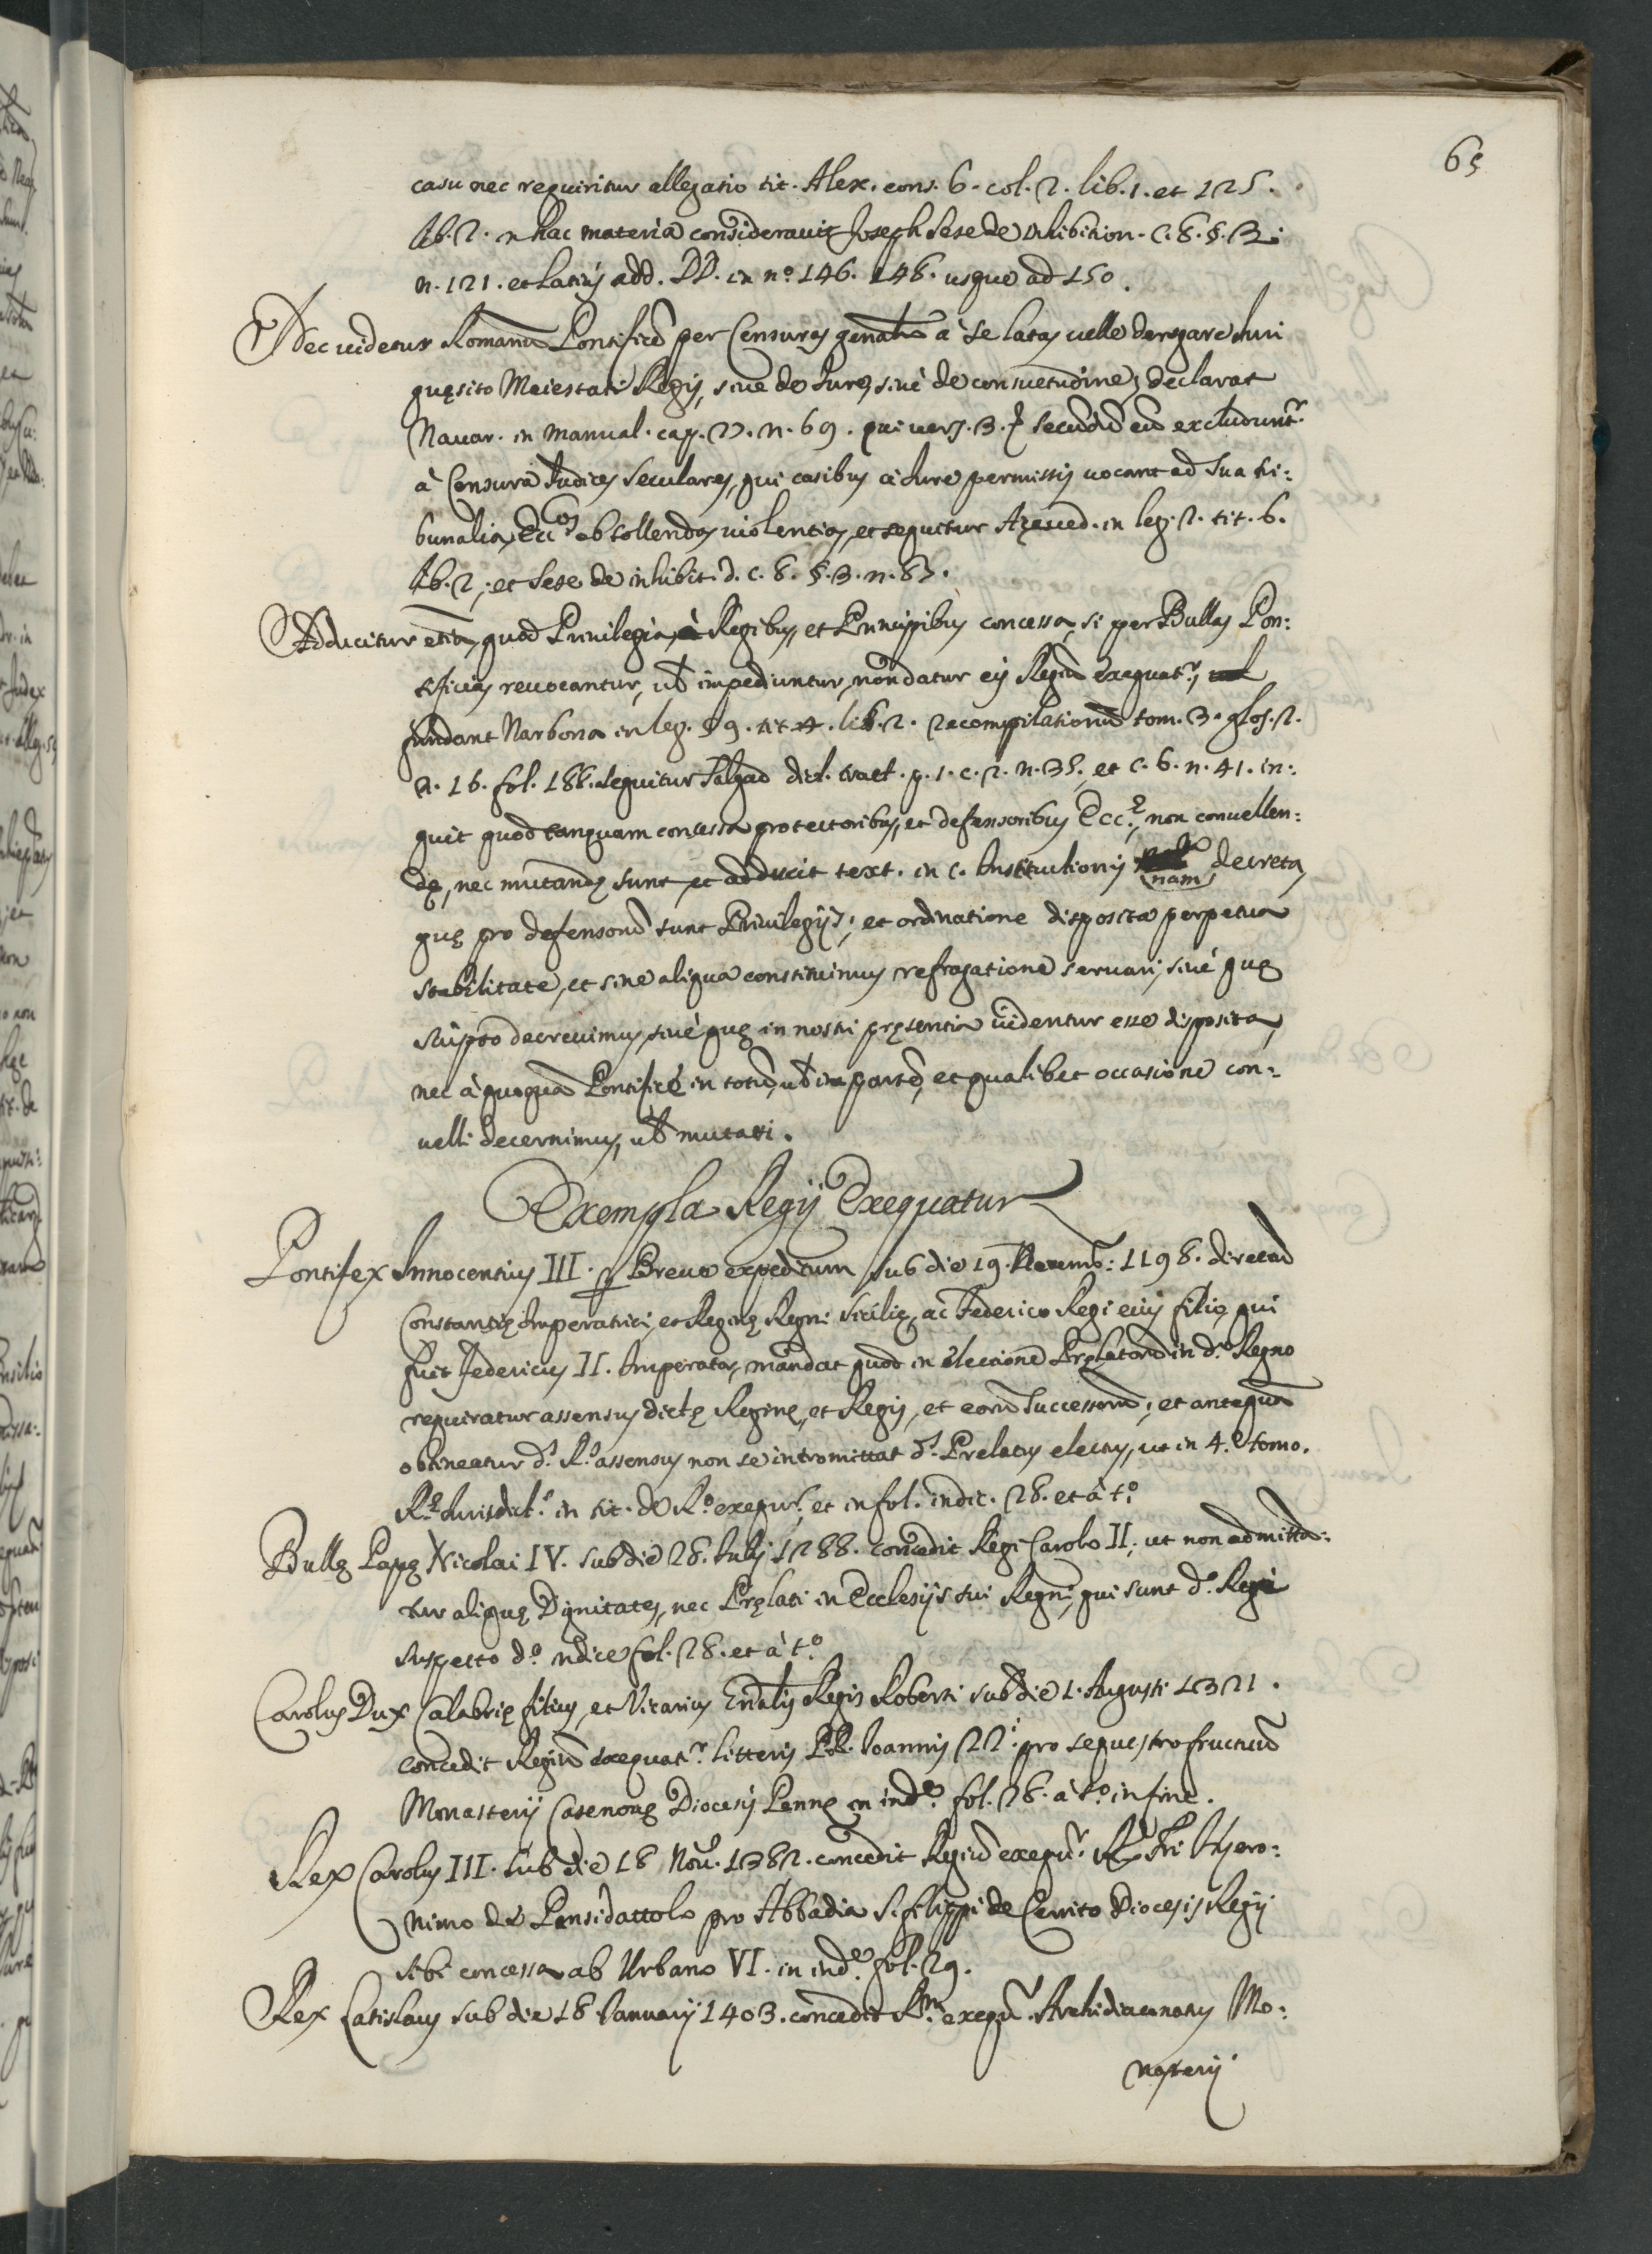 65
casu nec requiritur allegatio tit. Alex. cons. 6. col. 2. lib. 1. et 125.
lib. 2. n hac materia consideravit Joseph Sese de inhibition. C. 8. §. 3.
n. 121. et latius add. DD. in n.º 146. 148. usque ad 150.
Nec videtur Romanũ Pontificẽ per Censuras à se latas velle derogare Iuri
quęsito Maiestati Regis, sive de Iure, sivè de consuetudine, declarat
Navar. in Manual. cap. 27. n. 69. qui vers. 3. secundũ eũ excluduntr.
à Censura Iudices seculares, qui casibus à iure permissis vocant ad sua tri:
bunalia, Eccos ob tollendas violentias, et sequitur Azeved. in leg. 2. tit. 6.
lib. 2. et Sese de inhibit. d. c. 8. §. 3. n. 87.
Adducitur etiã, quod Privilegia, à Regibus, et Principibus concessa, si per Bullas Pon:
tificias revocantur, vl impediuntur, non datur eis Regiũ exequatr.,
fundant Narbona in leg. 59. tit. 4. lib. 2. recompilationũ tom. 3. glos. 2.
n. 16. fol. 188. sequitur Salgad dict. tract. p. 1. c. 2. n. 35. et c. 6. n. 41. in:
quit quod tanquam concessa protectoribus, et defensoribus Eccę. non convellen:
dę, nec mutandę sunt, et adducit text. in c. Institutionis nam decreta,
quę pro defensorũ sunt Privilegijs, et ordinatione disposita perpetua
stabilitate, et sine aliqua constituimus refragatione servari, sivè quę
scripto decrevimus, sivè quę in nostri pręsentia videntur esse disposita,
nec à quoquã Pontifice in totũ, vl in partẽ, et qualibet occasione con:
velli decernimus, vl mutari.
Exempla Regij Exequatur
Pontifex Innocentius III. Breve expeditum sub die 19. Novemb: 1198. direct.
Constantię Imperatrici, et Reginę Regni Sicilię, ac Federico Regi eius filio, qui
fuit Federicus II. Imperator, mandat quod in electione Pręlatorũ in d.º Regno
requiratur assensus dictę Reginę, et Regis, et eorũ Successorũ; et antequã
obtineatur d.s R.s assensus non se intromittat d.s Prelatus electus, ut in 4.º tomo.
Rę. Iurisdict.s in tit. de R.º exequr. et in fol. indic. 28. et à t.º
Bullę Papę Nicolai IV. sub die 28. Iulij 1288. concedit Regi Carolo II; ut non admitta:
tur aliquę Dignitates, nec Pręlati in Ecclesijs sui Regni, qui sunt d.º Regi
suspecto d.º indice fol. 28. et à t.º
Carolus Dux Calabrię filius, et Vicarius Gńalis Regis Roberti sub die 1. Augusti 1321.
concedit Regiũ exequatr. litteris PP. Ioannis 22.i pro sequestro fructuũ
Monasterij Casenovę Diocesis Pennę in inde. fol. 28. à t.º in fine.
Rex Carolus III. sub die 18 Nov. 1382. concedit Regiũ exequr. Hyero:
nimo de Pensidattolo pro Abbadia S. filippi de Cerrito Diocesis Regij
sibi concessa ab Urbano VI. in inde. fol. 29.
Rex Latislaus sub die 18 Ianuarij 1403. concedit Rm. exequr. Archidiaconatus Mo:
nasterij